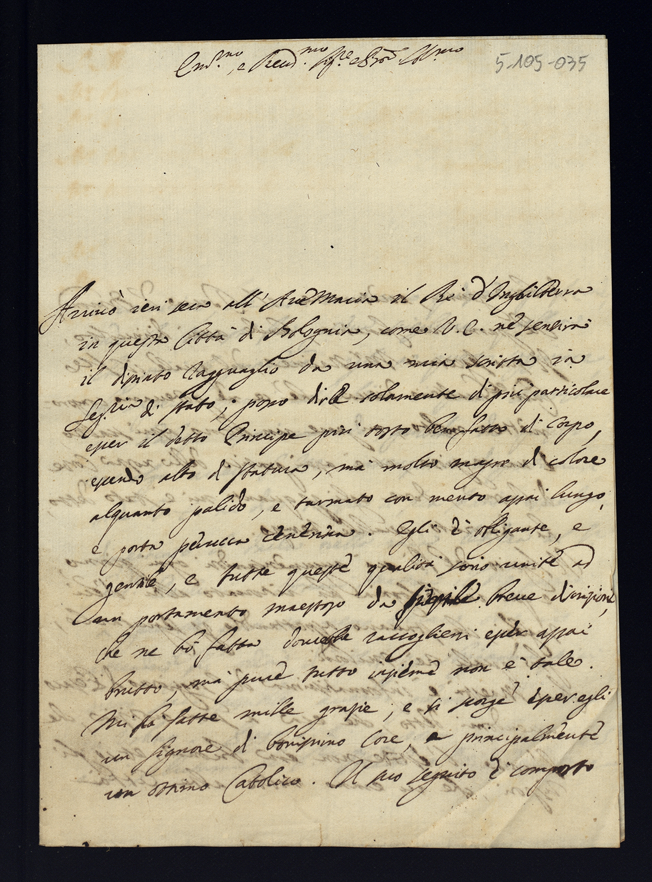 Em.mo, e Reud.mo Sig.e e Pron Col.mo
5-105-035
Arriuò ieri sera all' AueMaria il Rè d'Inghilterra
in questa Città di Bologna, come V. E. ne sentirà
il distinto ragguaglio da una mia scritta in
Segria di stato; posso dirLe solamente di più particolare
esser il detto Principe più tosto ben fatto di corpo,
essendo alto di statura, mà molto magro di colore
alquanto palido, e tarmato con mento assai lungo,
e porta perucca cenerina. Egli è obligante, e
gentile, e tutte queste qualità sono unite ad
un portamento maestoso da breue diuisione,
che ne hò fatta dourebbe raccogliersi esser assai
brutto, mà pure tutto insieme non è tale.
Mi hà fatte mille grazie, e si scorge esser egli
un Signore di bonissimo Core, e principalmente
un ottimo Catolico. Il suo seguito è composto